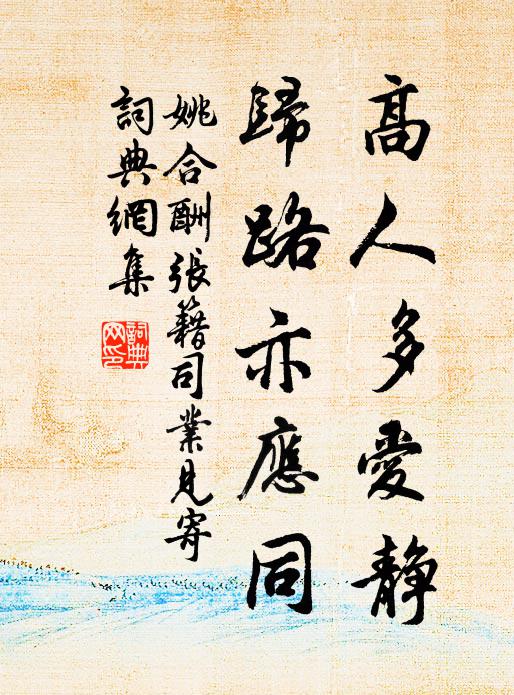 高人多愛靜
歸路亦應同
姚合酬張籍司業見寄
詞典網集
詞典網印